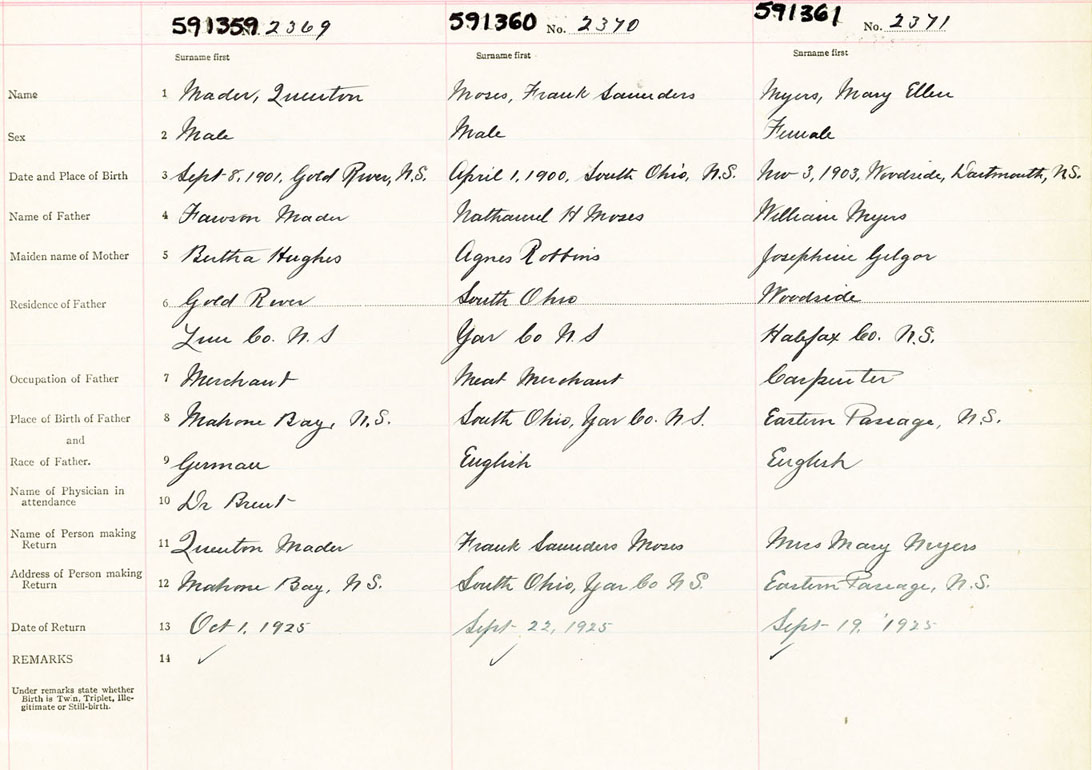 591359 2369 591360 No. 2370 591361 No. 2371
Surname first Surname first Surname first
Name 1 Mader, Quenton Moses, Frank Saunders Myers, Mary Ellen
Sex 2 Male Male Female
Date and Place of Birth 3 Sept 8, 1901, Gold River, N.S. April 1, 1900, South Ohio, N.S. Nov 3, 1903, Woodside, Dartmouth, N.S.
Name of Father 4 Mader Nathaniel H Moses William Myers
Maiden name of Mother 5 Bertha Hughes Agnes Robbins Josephine Gilgor
Residence of Father 6 Gold River South Ohio Woodside
Lun Co. N.S Yar Co N.S Halifax Co. N.S.
Occupation of Father 7 Merchant Meat Merchant Carpenter
Place of Birth of Father 8 Mahone Bay, N.S. South Ohio, Yar Co. N.S. Eastern Passage, N.S.
and
Race of Father. 9 German English English
Name of Physician in
attendance 10 Dr Brent
Name of Person making
Return 11 Quenton Mader Frank Saunders Moses Mrs Mary Myers
Address of Person making
Return 12 Mahone Bay, N.S. South Ohio, Yar Co N.S. Eastern Passage, N.S.
Date of Return 13 Oct 1, 1925 Sept 22, 1925 Sept 19, 1925
REMARKS 14 ✓ ✓ ✓
Under remarks state whether
Birth is Twin, Triplet, Ille-
gitimate or Still-birth.